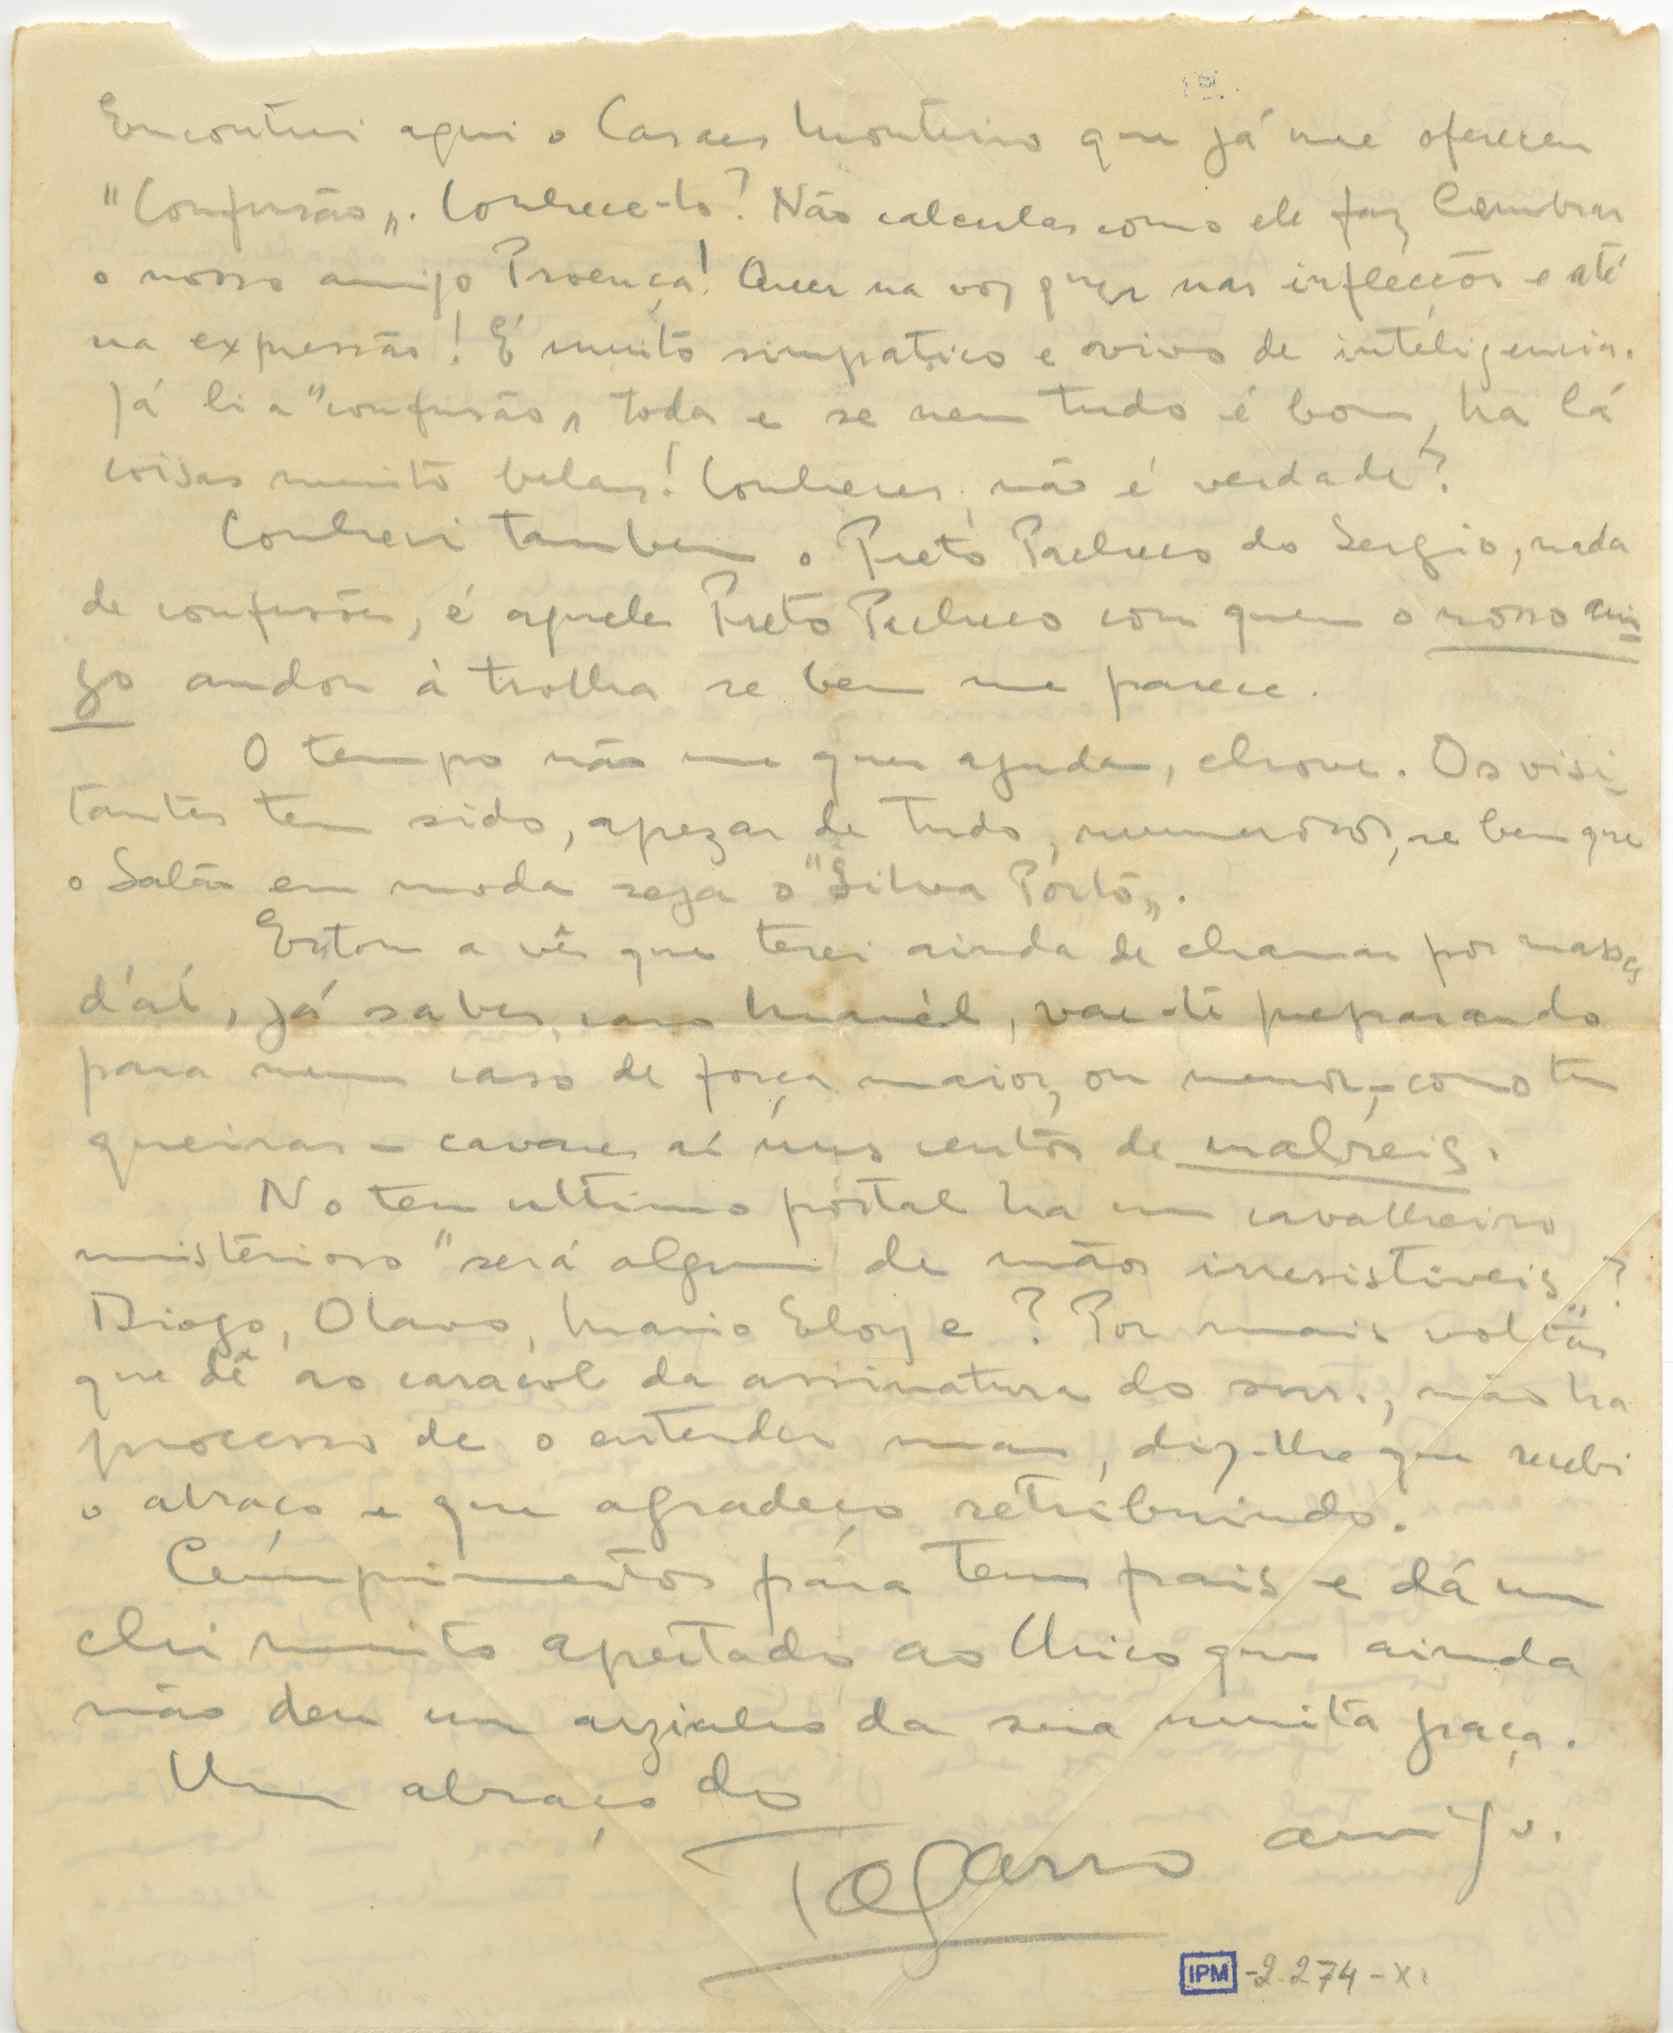 Encontrei aqui o Casaes Monteiro que já me ofereceu
"Confusão„. Conhece-lo? Não calculas como ele faz lembrar
o nosso amigo Proença! Quer na voz quer nas inflecções e até
na expressão! É muito simpatico e vivo de inteligencia.
Já li a "confusão„ toda e se nem tudo é bom, ha lá
coisas muito belas! Conheces, não é verdade?
Conheci tambem o Preto Pacheco do Sergio, nada
de confusões, é aquele Preto Pacheco com quem o nosso ami
go andou á trolha se bem me parece.
O tempo não me quer ajudar, chove. Os visi-
tantes tem sido, apezar de tudo, numerosos, se bem que
o Salão em moda seja o "Silva Pôrto„.
Estou a vêr que terei ainda de chamar por massas
d'aí, já sabes, caro Manél, vae-te preparando
para num caso de força maior, ou menor, - como tu
queiras - cavares aí uns centos de malreis.
No teu ultimo postal ha um cavalheiro
misterioso "será algum de mãos irresistiveis„?
Diogo, Olavo, Mario Eloy e ? Por mais voltas
que dê ao caracol da assinatura do snr., não ha
processo de o entender mas, diz-lhe que recebi
o abraço e que agradeço retribuindo.
Cumprimentos pára teus pais e dá um
chi muito apertado ao Chico que ainda
não deu um arzinho da sua muita graça.
Um abraço do
amigo.
Tagarro
IPM -2.274-XI